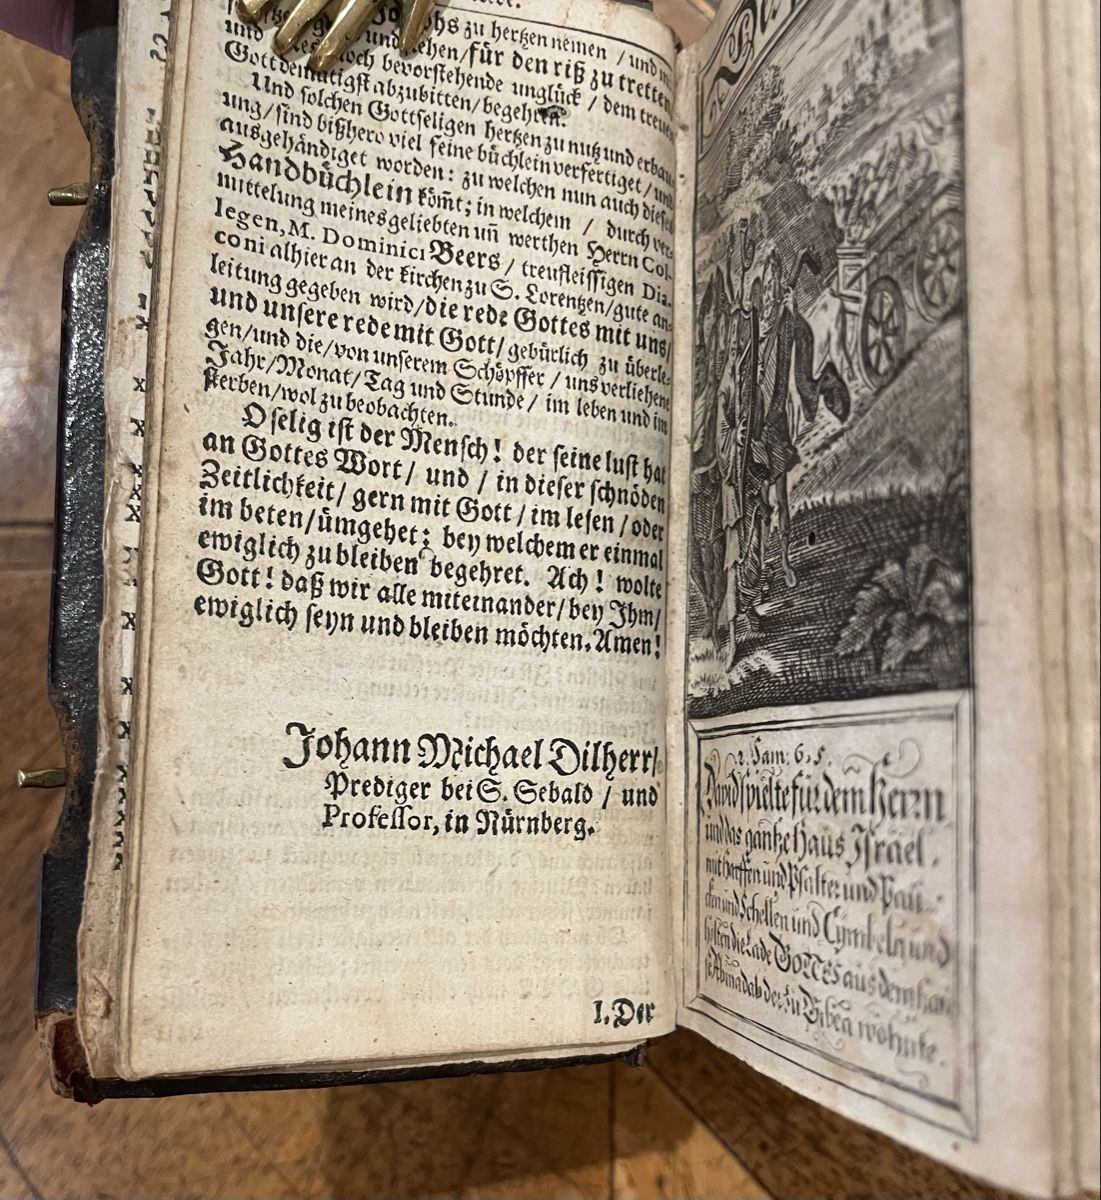 hs zu hertzen nemen / und
und flehen / für den riß zu tretten
und noch bevorstehende unglück / dem treuen
Gott demütigst abzubitten / begehren.
Und solchen Gottseligen hertzen zu nutz und erbau-
ung / sind bißhero viel feine büchlein verfertiget / und
ausgehändiget worden: zu welchen nun auch dieses
Handbüchlein kömt; in welchem / durch ver-
mittelung meines geliebten uñ werthen Herrn Col-
legen, M. Dominici Beers / treufleissigen Dia-
coni alhier an der kirchen zu S. Lorentzen / gute an-
leitung gegeben wird / die rede Gottes mit uns /
und unsere rede mit Gott / gebürlich zu überle-
gen / und die / von unserem Schöpffer / uns verliehene
Jahr / Monat / Tag und Stunde / im leben und im
sterben / wol zu beobachten.
O selig ist der Mensch! der seine lust hat
an Gottes Wort / und / in dieser schnöden
Zeitlichkeit / gern mit Gott / im lesen / oder
im beten / ümgehet; bey welchem er einmal
ewiglich zu bleiben begehret. Ach! wolte
Gott! daß wir alle miteinander / bey Ihm /
ewiglich seyn und bleiben möchten. Amen!
Johann Michael Dilherr /
Prediger bei S. Sebald / und
Professor, in Nürnberg.
I. Der
2. Sam: 6. 5.
David spielte für dem Herrn
und das gantze Haus Israel.
mit Harffen und Psalter und Pau-
cken und Schellen und Cymbeln und
holten die Lade GOTTES aus dem hau-
se Abinadab der zu Gibea wohnte.